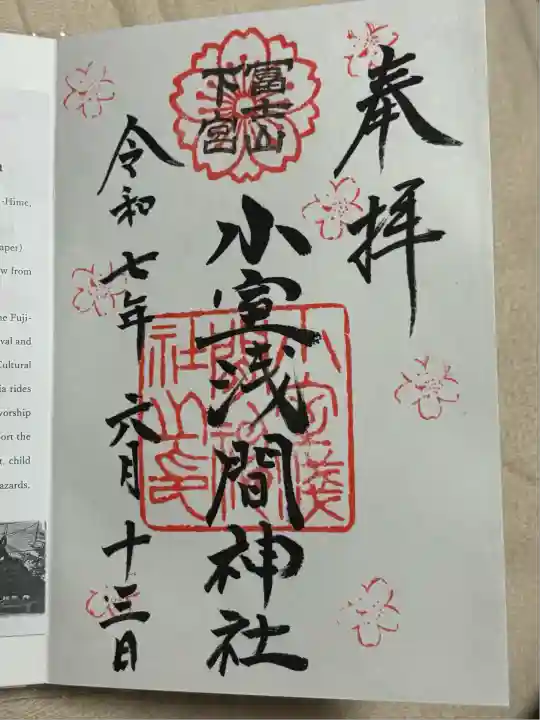 奉拝
富士山
下宮
小室浅間神社
令和七年 六月 十三日
-Hime,
aper)
w from
he Fuji-
val and
Cultural
ia rides
worship
ort the
t, child
azards.